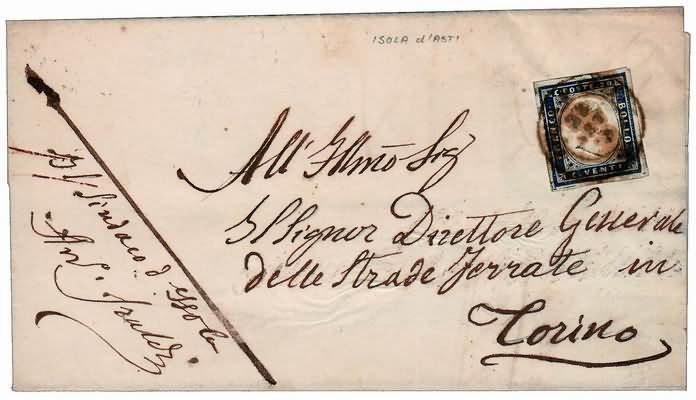 ISOLA d'ASTI
C. POSTE 20
FRANCO
BOLLO
C. VENTI
All' Illmo Sig
Il Signor Direttore Generale
delle Strade Ferrate in
Torino
Il Sindaco d'Isola